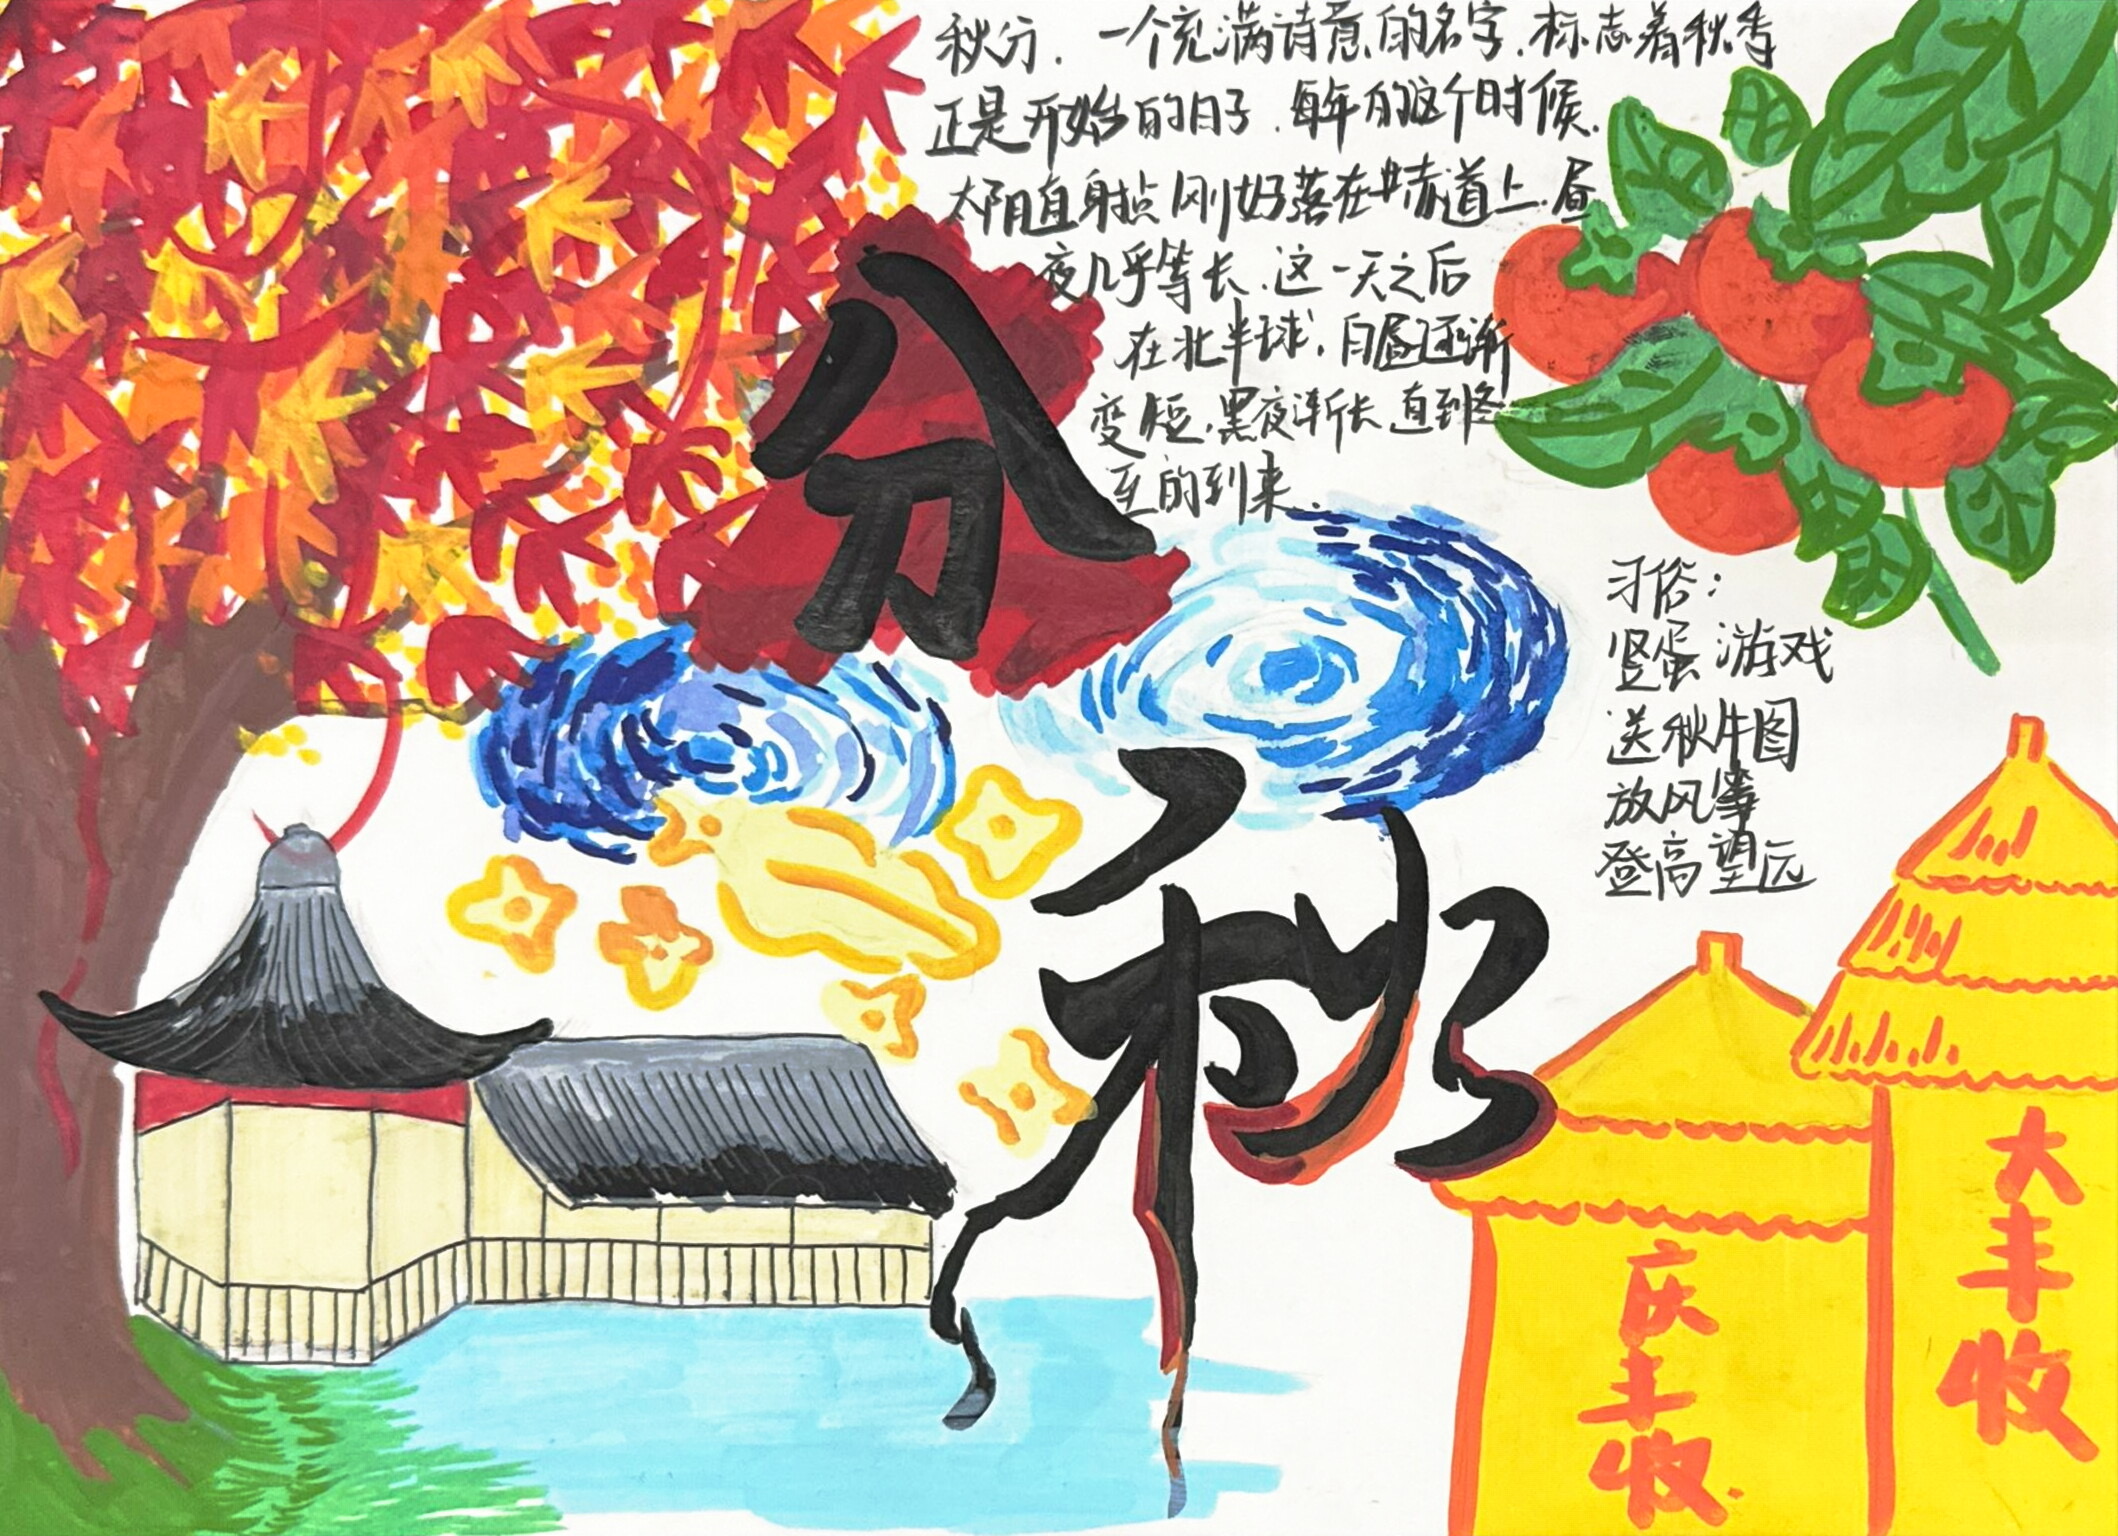 秋分，一个充满诗意的名字，标志着秋季
正是开始的日子，每年的这个时候，
太阳直射点刚好落在赤道上，昼
夜几乎等长，这一天之后
在北半球，白昼逐渐
变短，黑夜渐长直到冬
至的到来。
分
秋
习俗：
竖蛋游戏
送秋牛图
放风筝
登高望远
大丰收
庆丰收